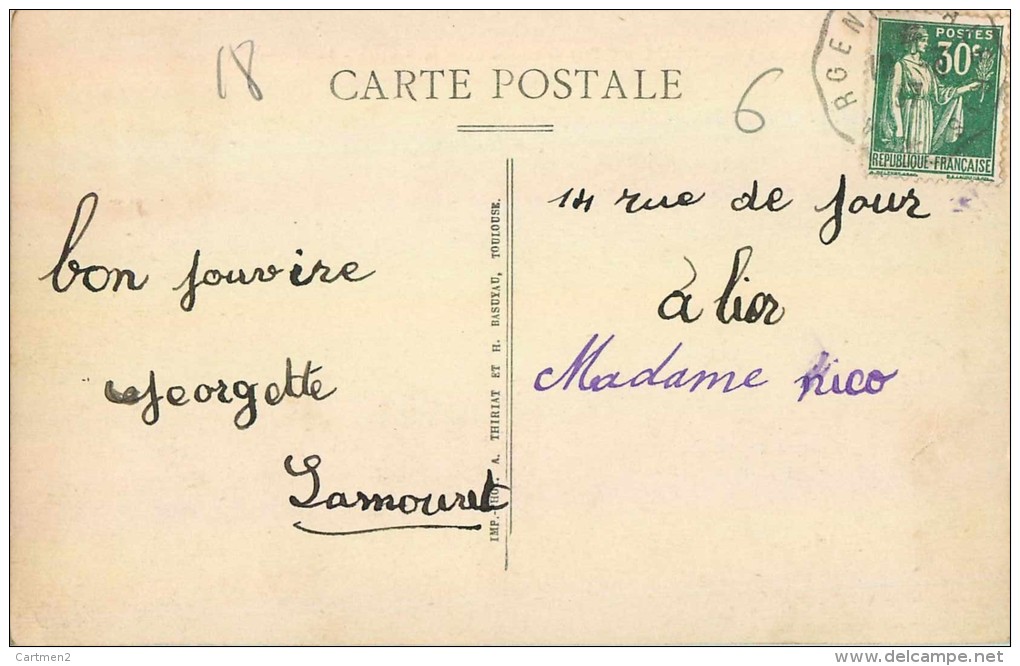 18
CARTE POSTALE
6
RGEN
POSTES
30c
REPUBLIQUE-FRANÇAISE
bon souvire
Georgette
Lamouret
IMP.-PHOT. A. THIRIAT ET H. BASUYAU, TOULOUSE.
14 rue de jour
à lior
Madame nico
Cartmen2
www.delcampe.net